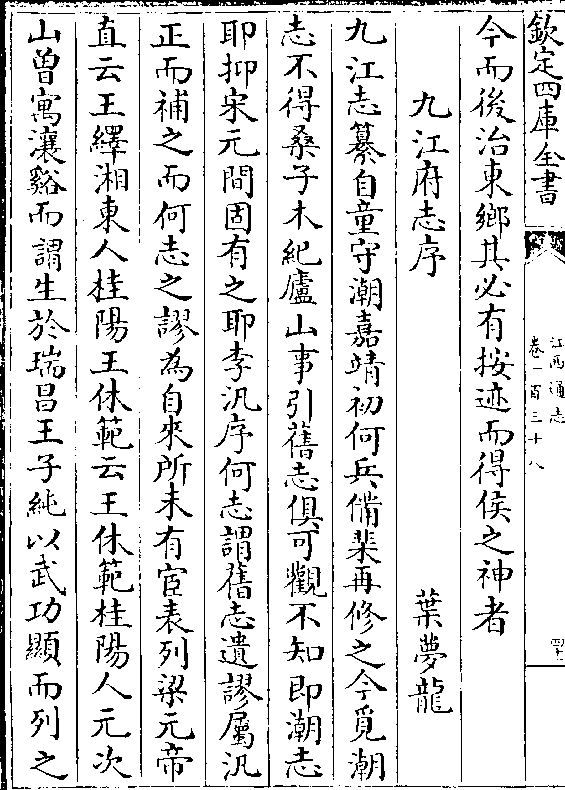 欽定四庫全書
江西通志
卷一百三十八
四十
今而後治東鄉其必有按迹而得侯之神者
九江府志序
葉夢龍
九江志纂自童守潮嘉靖初何兵備棐再修之今覓潮
志不得桑子木紀廬山事引舊志俱可觀不知即潮志
耶抑宋元間固有之耶李汎序何志謂舊志遺謬屬汎
正而補之而何志之謬為自來所未有宦表列梁元帝
直云王繹湘東人桂陽王休範云王休範桂陽人元次
山曾寓瀼谿而謂生於瑞昌王子純以武功顯而列之